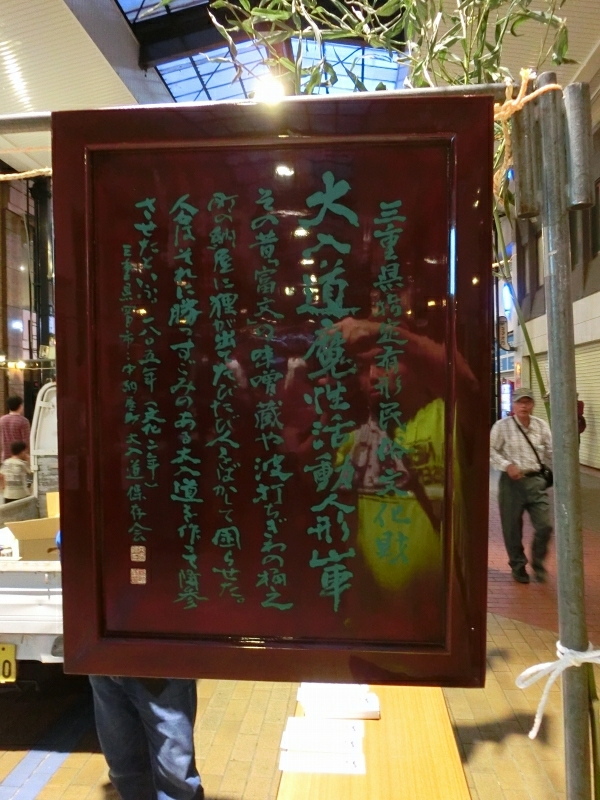 三重県指定有形民俗文化財
大入道魔性活動人形山車
その昔、富大の味噌蔵や波打ちぎわの桶之
町の納屋に狸が出てたびたび人をばかして困らせた。
人はそれに勝るすごみのある大入道を作って退参
させたという。一八〇五年（文化二年）
三重県四日市市中納屋町大入道保存会
0